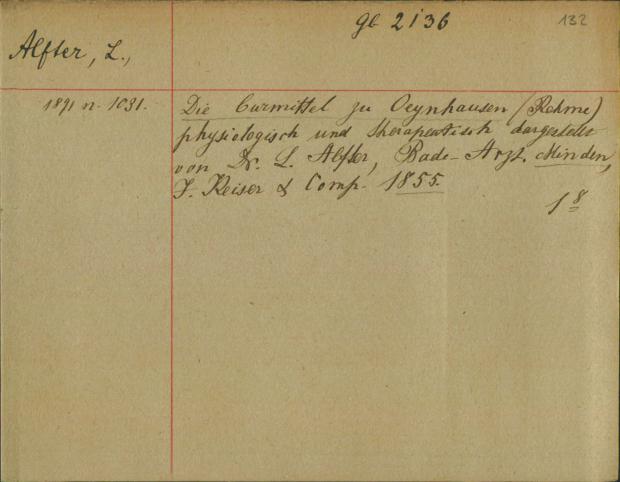 gb 2136
132
Alfter, L.,
1891 n. 1031.
Die Curmittel zu Oeynhausen (Rehme)
physiologisch und therapeutisch dargestellt
von Dr. L. Alfter, Bade-Arzt. Minden,
J. Keiser & Comp. 1855.
18